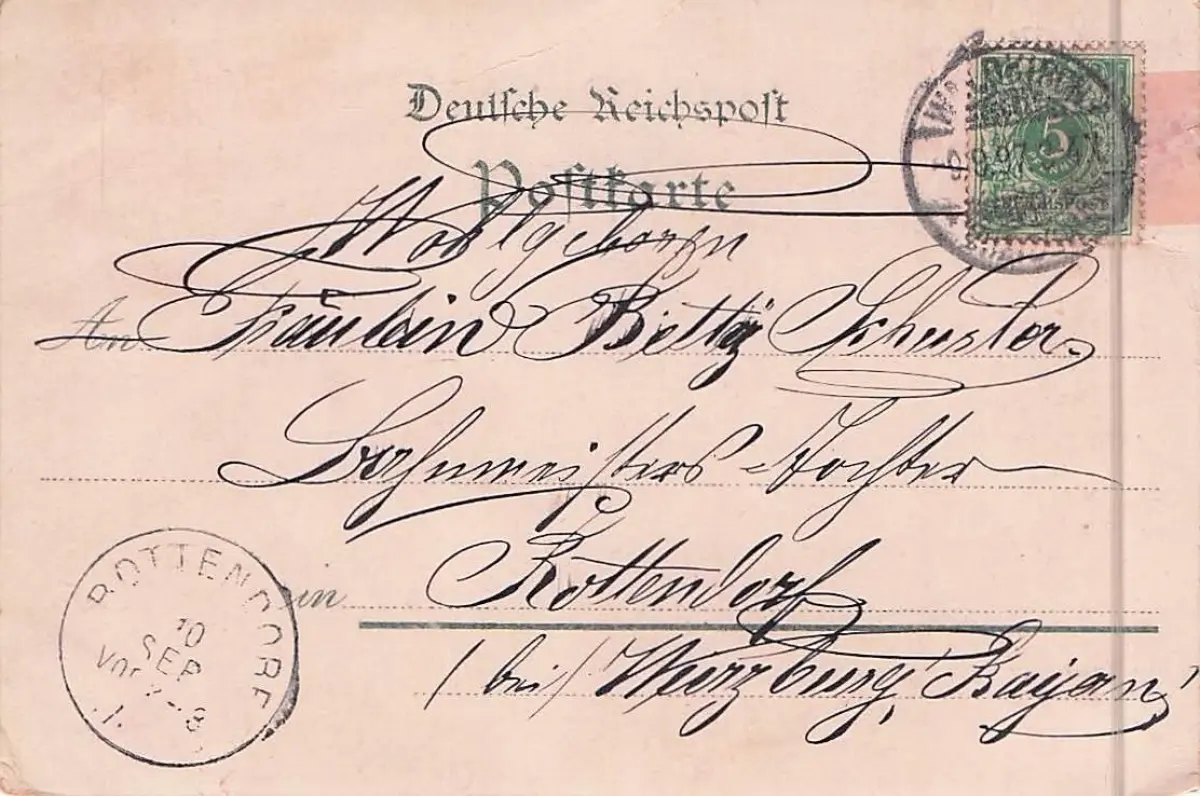 Deutsche Reichspost
Postkarte
5
REICHSPOST
9.9.97
Wohlgeboren
An Fräulein Betty Schuster,
Bahnmeisters-Tochter
in Rottendorf
(bei) Würzburg, Bayern
ROTTENDORF
10
SEP
Vor 7-8